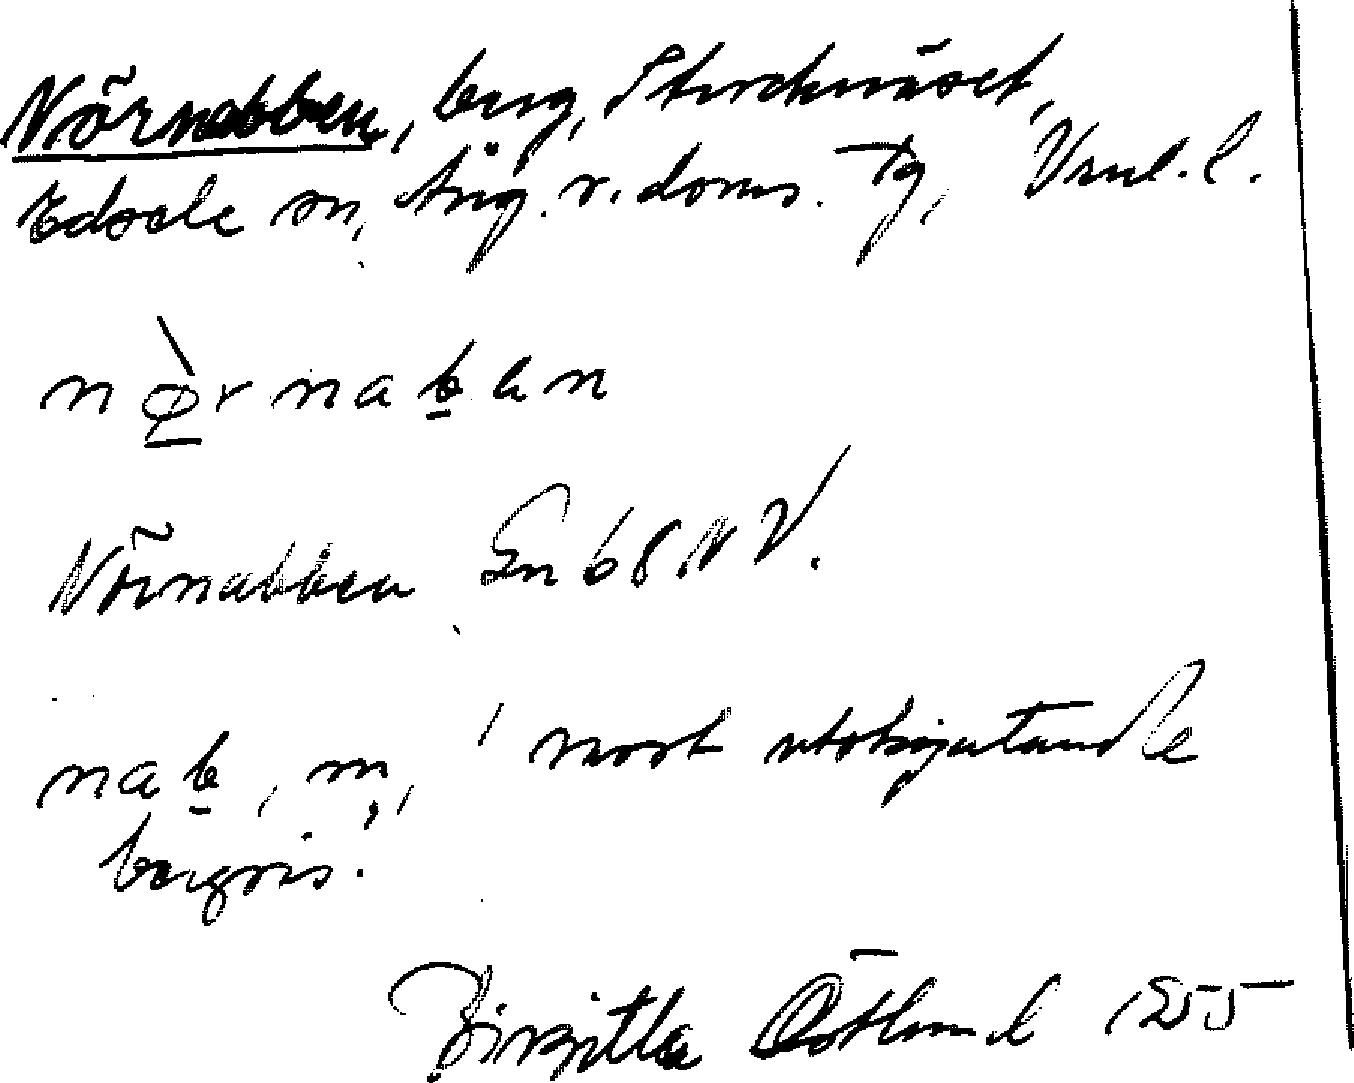 Nörnabben, berg, Storknäset,
Edsele sn, Ång. v. doms. Tg, Vnl. l.
nø̱̀rnab̲an
Nörnabben Gn 68 NV.
nab̲, m, ' mest utskjutande
bergris.
Birgitta Östlund 1955